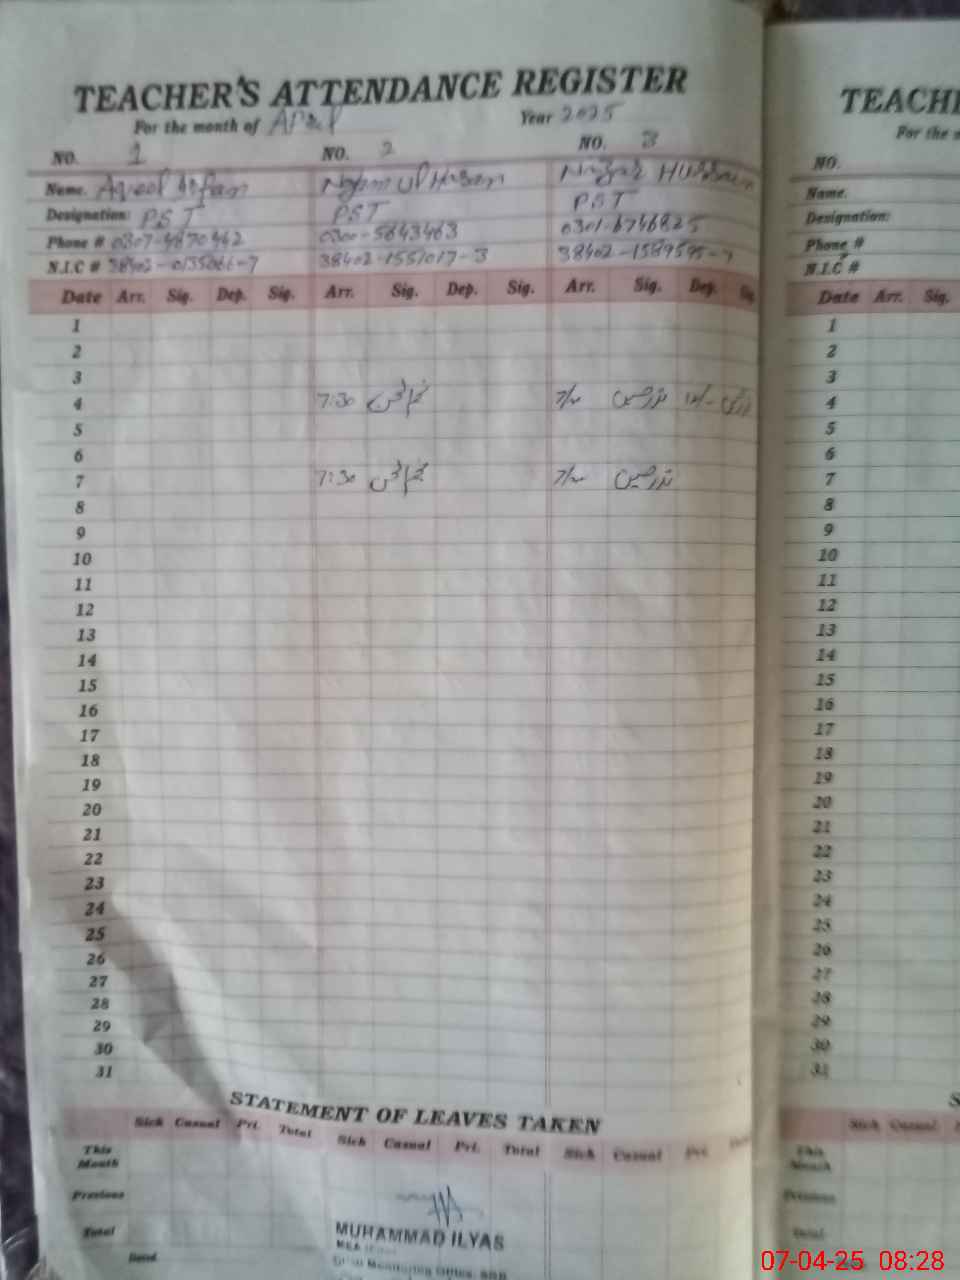 TEACHER'S ATTENDANCE REGISTER
For the month of April Year 2025
NO. 1 NO. 2 NO. 3
Name. Najam ul Hasan Hussain
Designation: PST PST PST
Phone # 0307-4870462 0300-5643463 0301-6746825
N.I.C # 38402-0135066-7 38402-1551017-3 38402-1589595-7
Date Arr. Sig. Dep. Sig. Arr. Sig. Dep. Sig. Arr. Sig. Dep. Sig.
1
2
3
4 7:30 نجم الحسن نذر حسین
5
6
7 7:30 نجم الحسن نذر حسین
8
9
10
11
12
13
14
15
16
17
18
19
20
21
22
23
24
25
26
27
28
29
30
31
STATEMENT OF LEAVES TAKEN
Sick Casual Pri. Total Sick Casual Pri. Total Sick Casual Pri.
This Month
Previous
Total
MUHAMMAD ILYAS
MEA
TEACH
For the
NO.
Name.
Designation:
Phone #
N.I.C #
Date Arr. Sig.
1
2
3
4
5
6
7
8
9
10
11
12
13
14
15
16
17
18
19
20
21
22
23
24
25
26
27
28
29
30
31
S
Sick Casual
This Month
Previous
Total
07-04-25 08:28